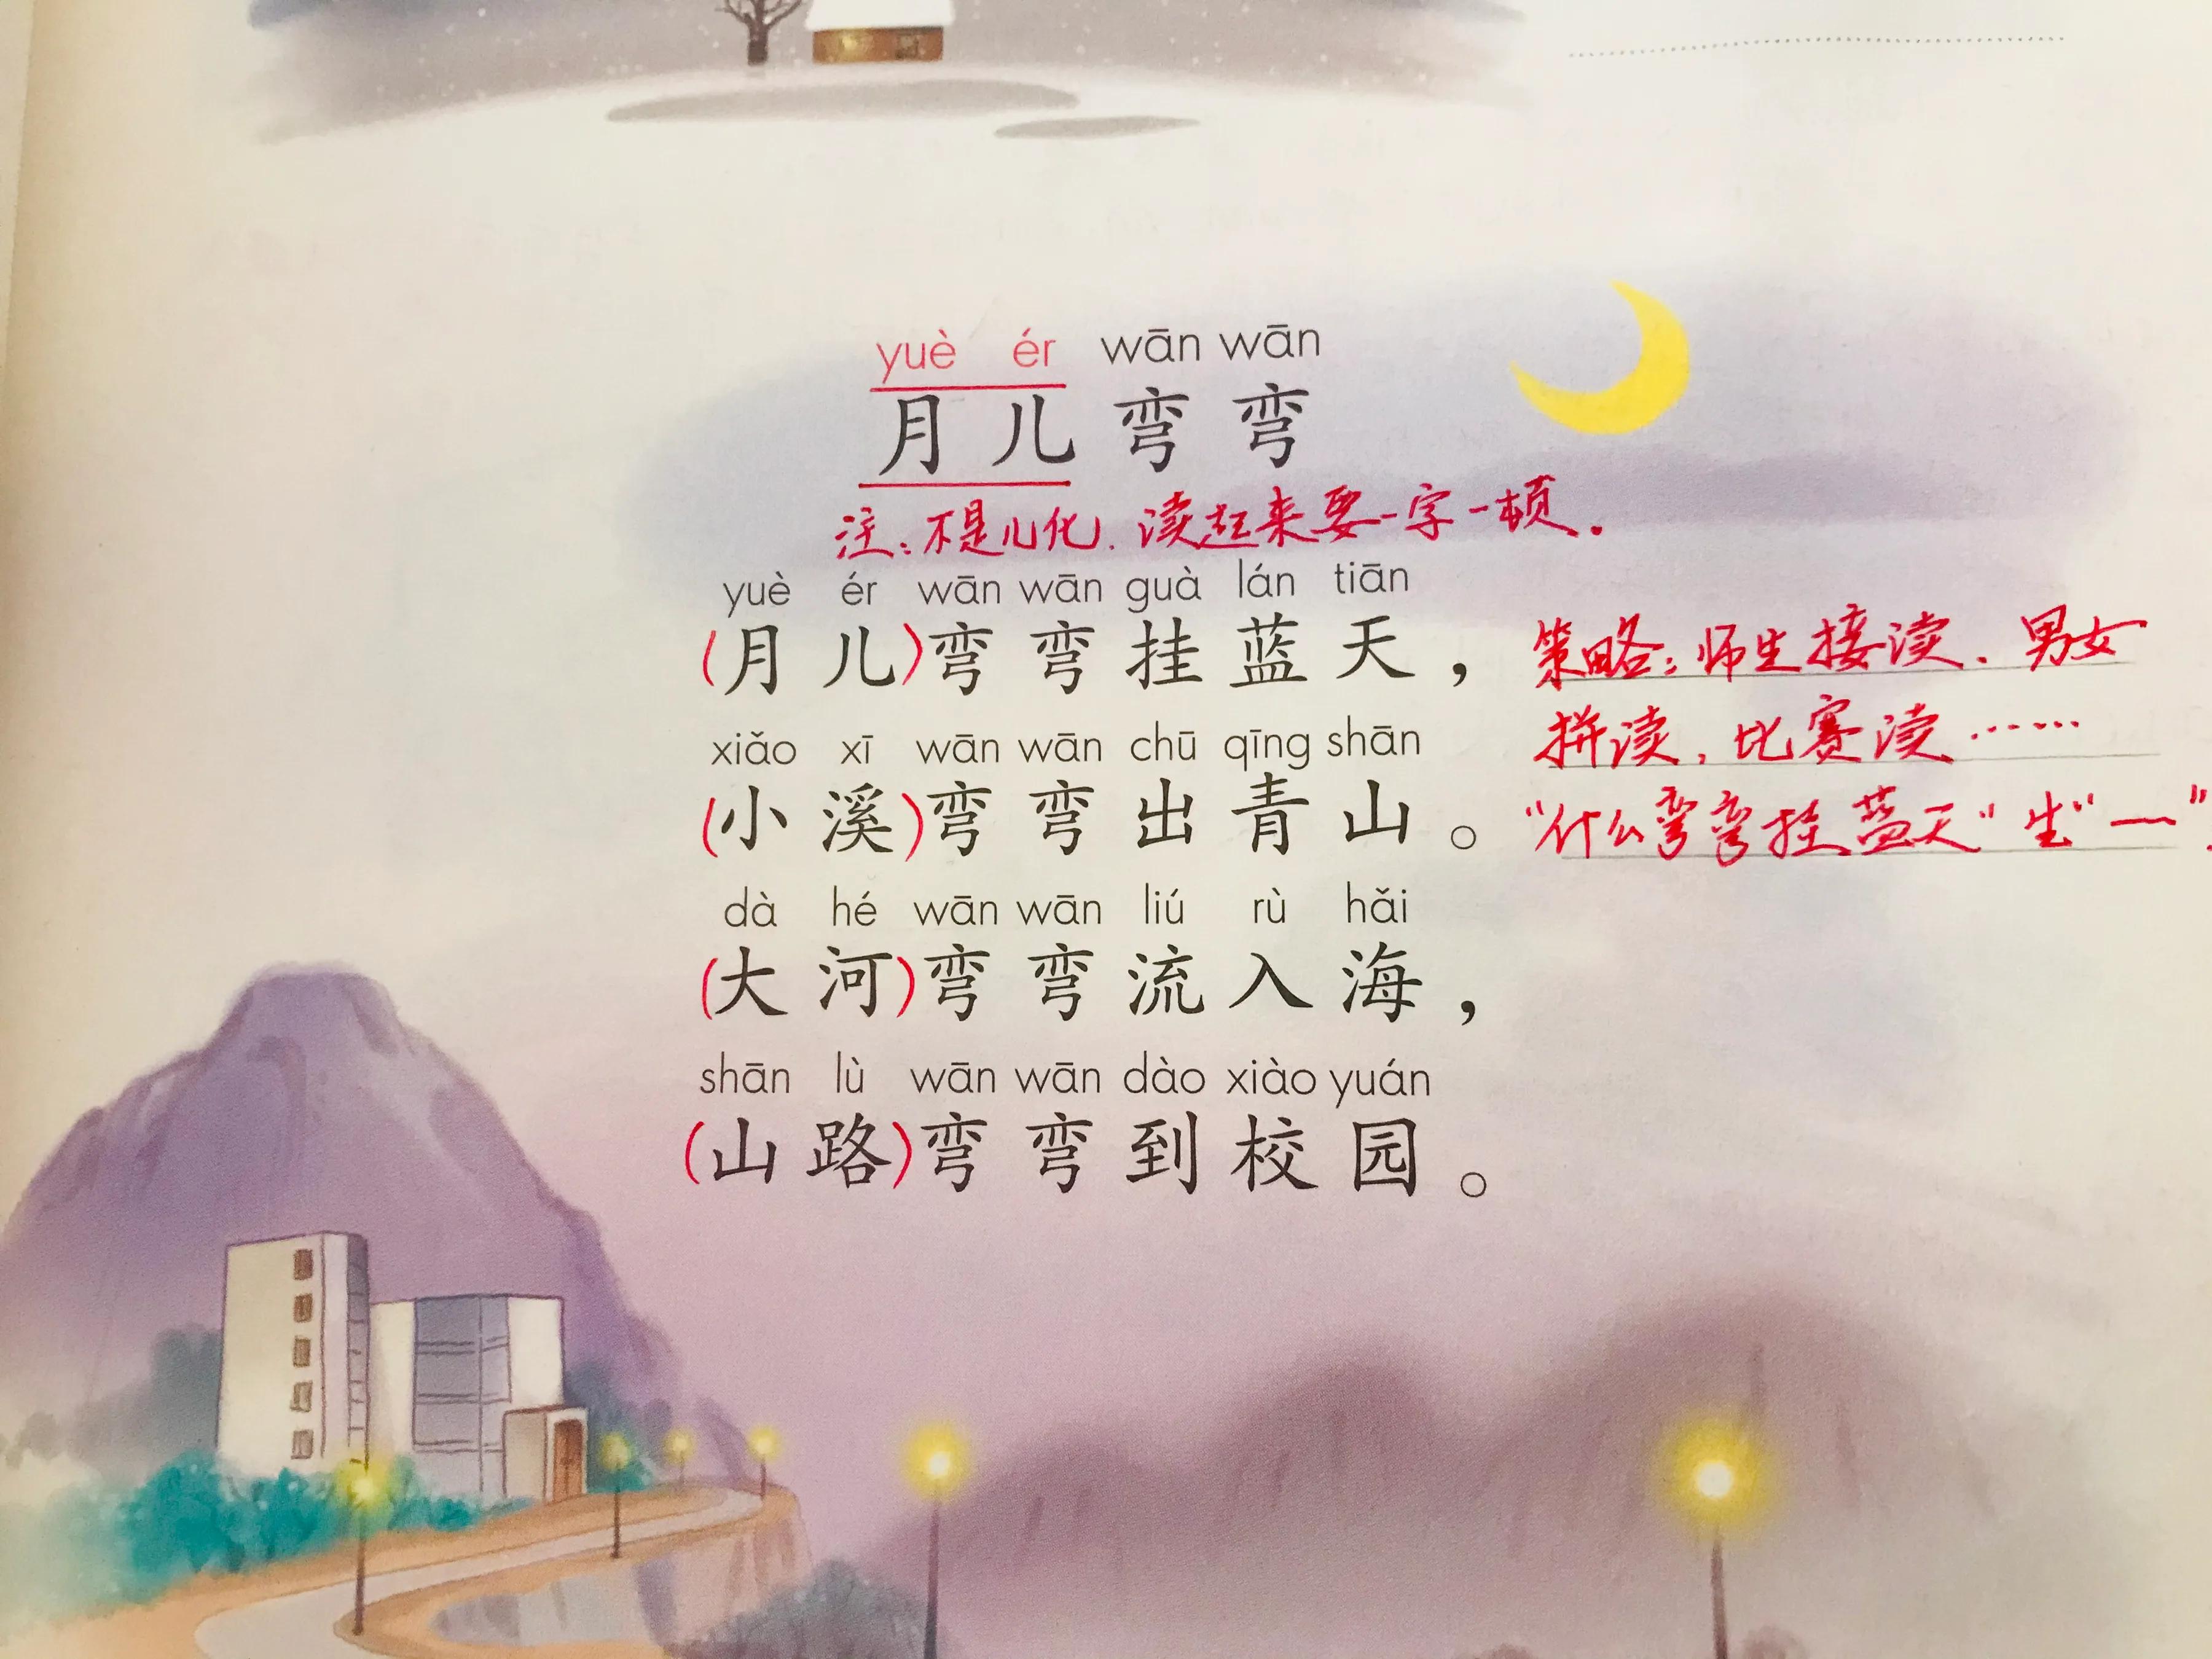 yuè ér wān wān
月儿弯弯
注：不是儿化．读起来要一字一顿．
yuè ér wān wān guà lán tiān
(月儿)弯弯挂蓝天，
策略：师生接读．男女
xiǎo xī wān wān chū qīng shān
拼读，比赛读……
(小溪)弯弯出青山。
“什么弯弯挂蓝天” 生“——”.
dà hé wān wān liú rù hǎi
(大河)弯弯流入海，
shān lù wān wān dào xiào yuán
(山路)弯弯到校园。